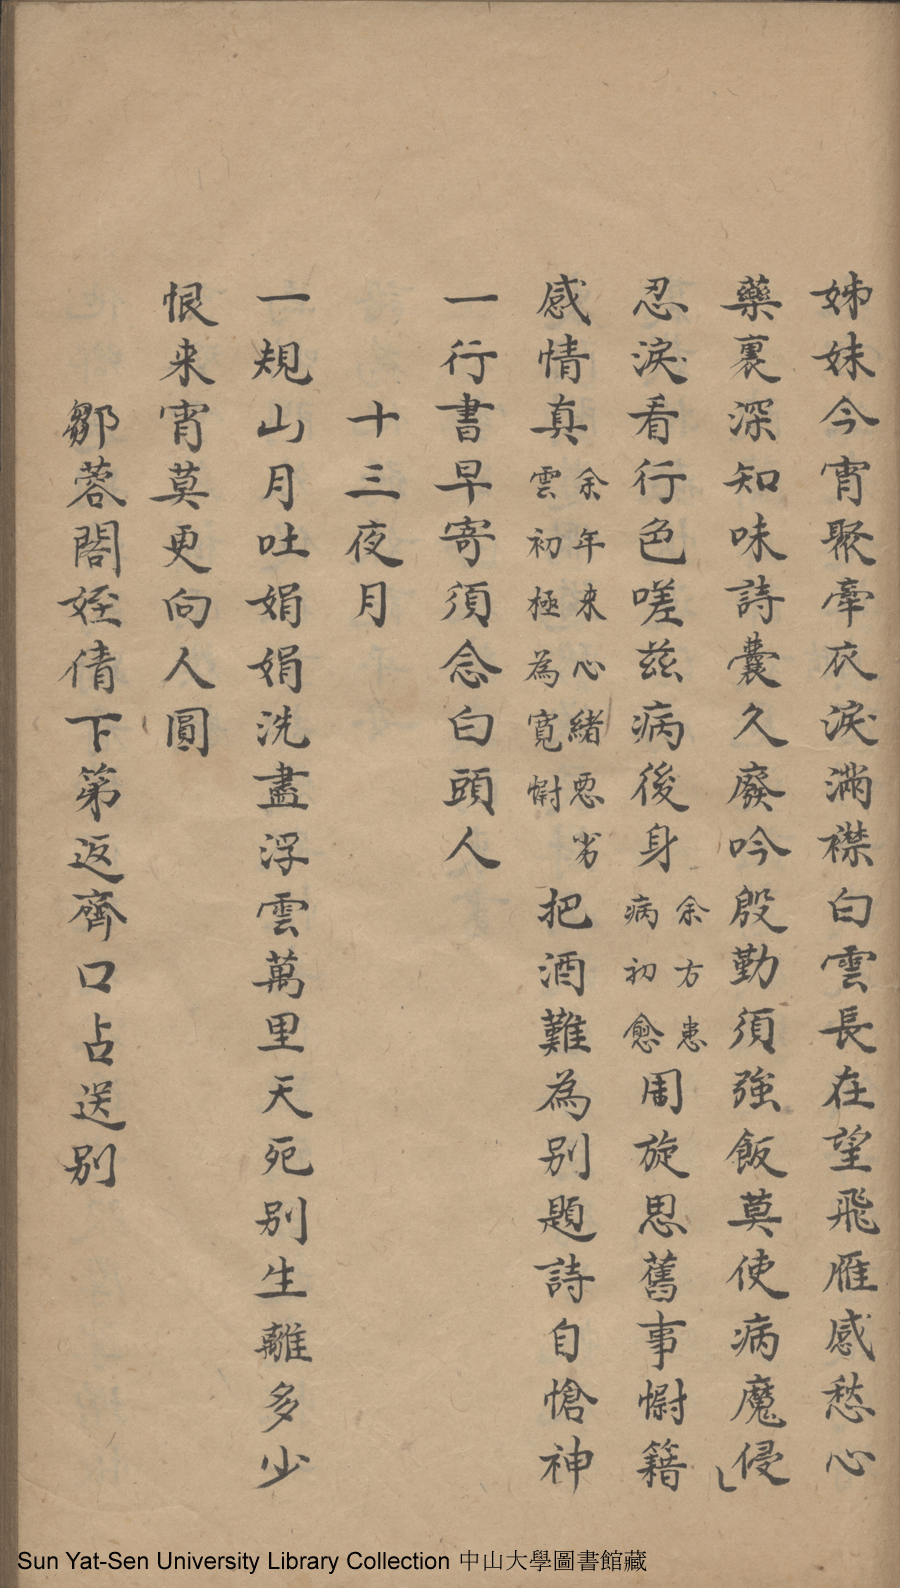 姊妹今宵聚牽衣淚滿襟白雲長在望飛雁感愁心
藥裏深知味詩囊久廢吟殷勤須強飯莫使病魔侵
忍淚看行色嗟茲病後身余方患病初愈周旋思舊事慰籍
感情真余年来心緒恶劣雲初極為寬慰把酒難為別題詩自愴神
一行書早寄須念白頭人
十三夜月
一規山月吐娟娟洗盡浮雲萬里天死別生離多少
恨来宵莫更向人圓
鄒蓉閣姪倩下第返齊口占送別
Sun Yat-Sen University Library Collection 中山大學圖書館藏